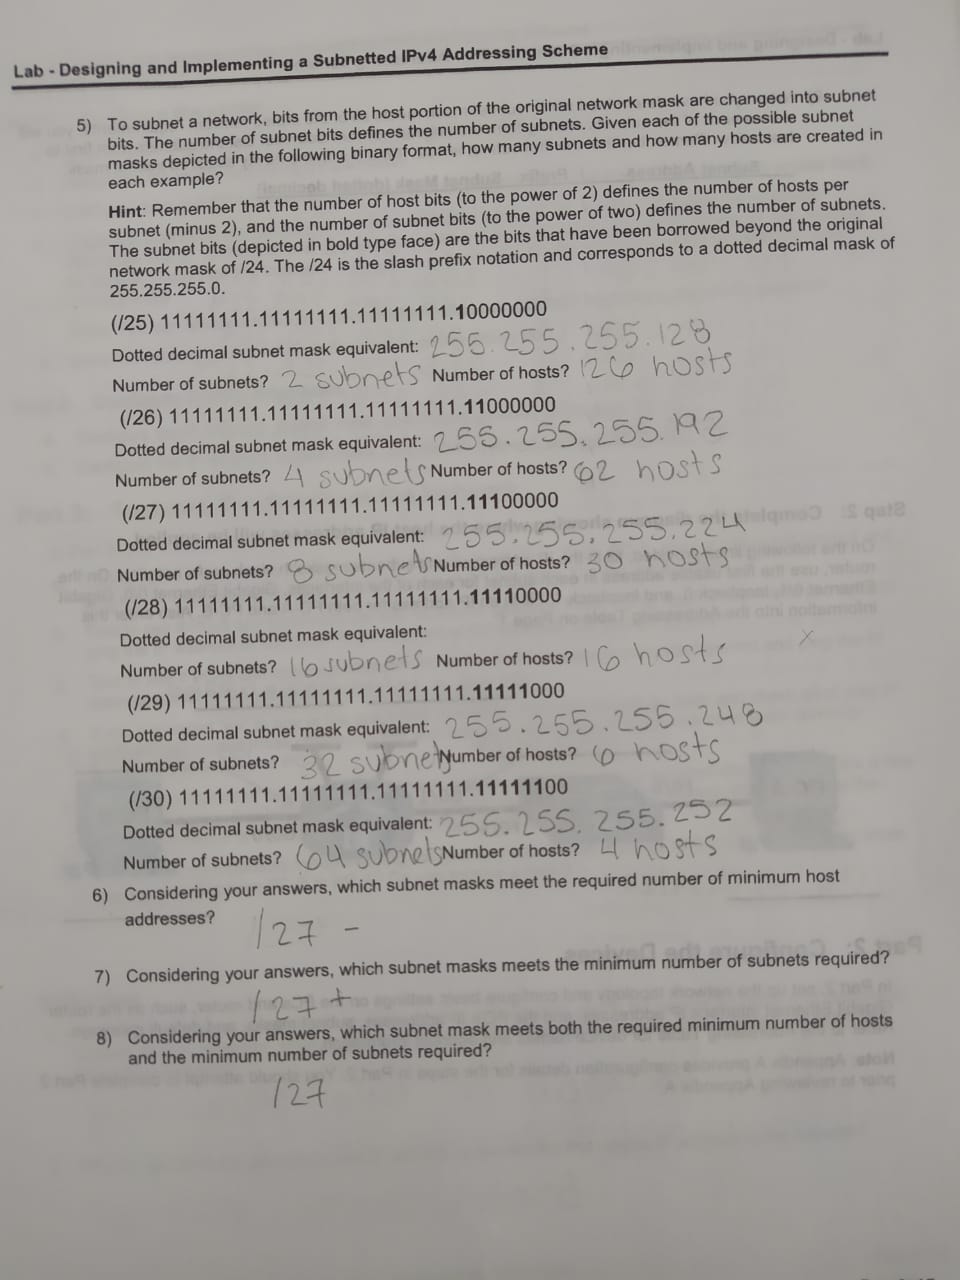 Lab - Designing and Implementing a Subnetted IPv4 Addressing Scheme
5) To subnet a network, bits from the host portion of the original network mask are changed into subnet
bits. The number of subnet bits defines the number of subnets. Given each of the possible subnet
masks depicted in the following binary format, how many subnets and how many hosts are created in
each example?
Hint: Remember that the number of host bits (to the power of 2) defines the number of hosts per
subnet (minus 2), and the number of subnet bits (to the power of two) defines the number of subnets.
The subnet bits (depicted in bold type face) are the bits that have been borrowed beyond the original
network mask of /24. The /24 is the slash prefix notation and corresponds to a dotted decimal mask of
255.255.255.0.
(/25) 11111111.11111111.11111111.10000000
Dotted decimal subnet mask equivalent: 255.255.255.128
Number of subnets? 2 subnets Number of hosts? 126 hosts
(/26) 11111111.11111111.11111111.11000000
Dotted decimal subnet mask equivalent: 255.255.255.192
Number of subnets? 4 subnets Number of hosts? 62 hosts
(/27) 11111111.11111111.11111111.11100000
Dotted decimal subnet mask equivalent: 255.255.255.224
Number of subnets? 8 subnets Number of hosts? 30 hosts
(/28) 11111111.11111111.11111111.11110000
Dotted decimal subnet mask equivalent:
Number of subnets? 16 subnets Number of hosts? 16 hosts x
(/29) 11111111.11111111.11111111.11111000
Dotted decimal subnet mask equivalent: 255.255.255.248
Number of subnets? 32 subnets Number of hosts? 6 hosts
(/30) 11111111.11111111.11111111.11111100
Dotted decimal subnet mask equivalent: 255.255.255.252
Number of subnets? 64 subnets Number of hosts? 4 hosts
6) Considering your answers, which subnet masks meet the required number of minimum host
addresses? /27 -
7) Considering your answers, which subnet masks meets the minimum number of subnets required?
/27 +
8) Considering your answers, which subnet mask meets both the required minimum number of hosts
and the minimum number of subnets required?
/27